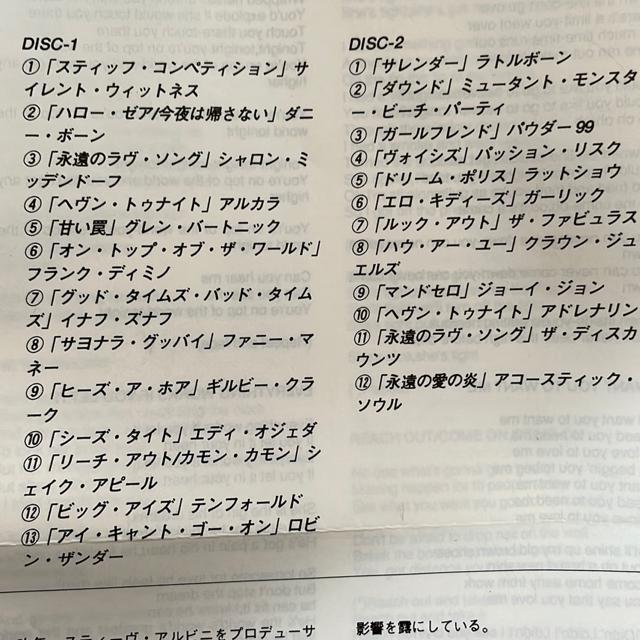 DISC-1
①「スティッフ・コンペティション」サ
イレント・ウィットネス
②「ハロー・ゼア/今夜は帰さない」ダニ
ー・ボーン
③「永遠のラヴ・ソング」シャロン・ミ
ッデンドーフ
④「ヘヴン・トゥナイト」アルカラ
⑤「甘い罠」グレン・バートニック
⑥「オン・トップ・オブ・ザ・ワールド」
フランク・ディミノ
⑦「グッド・タイムズ・バッド・タイム
ズ」イナフ・ズナフ
⑧「サヨナラ・グッバイ」ファニー・マ
ネー
⑨「ヒーズ・ア・ホア」ギルビー・クラ
ーク
⑩「シーズ・タイト」エディ・オジェダ
⑪「リーチ・アウト/カモン・カモン」シ
ェイク・アピール
⑫「ビッグ・アイズ」テンフォールド
⑬「アイ・キャント・ゴー・オン」ロビ
ン・ザンダー
DISC-2
①「サレンダー」ラトルボーン
②「ダウンド」ミュータント・モンスタ
ー・ビーチ・パーティ
③「ガールフレンド」パウダー99
④「ヴォイシズ」パッション・リスク
⑤「ドリーム・ポリス」ラットショウ
⑥「エロ・キディーズ」ガーリック
⑦「ルック・アウト」ザ・ファビュラス
⑧「ハウ・アー・ユー」クラウン・ジュ
エルズ
⑨「マンドセロ」ジョーイ・ジョン
⑩「ヘヴン・トゥナイト」アドレナリン
⑪「永遠のラヴ・ソング」ザ・ディスカ
ウンツ
⑫「永遠の愛の炎」アコースティック・
ソウル
スティーヴ・アルビニをプロデューサ
影響を露にしている。